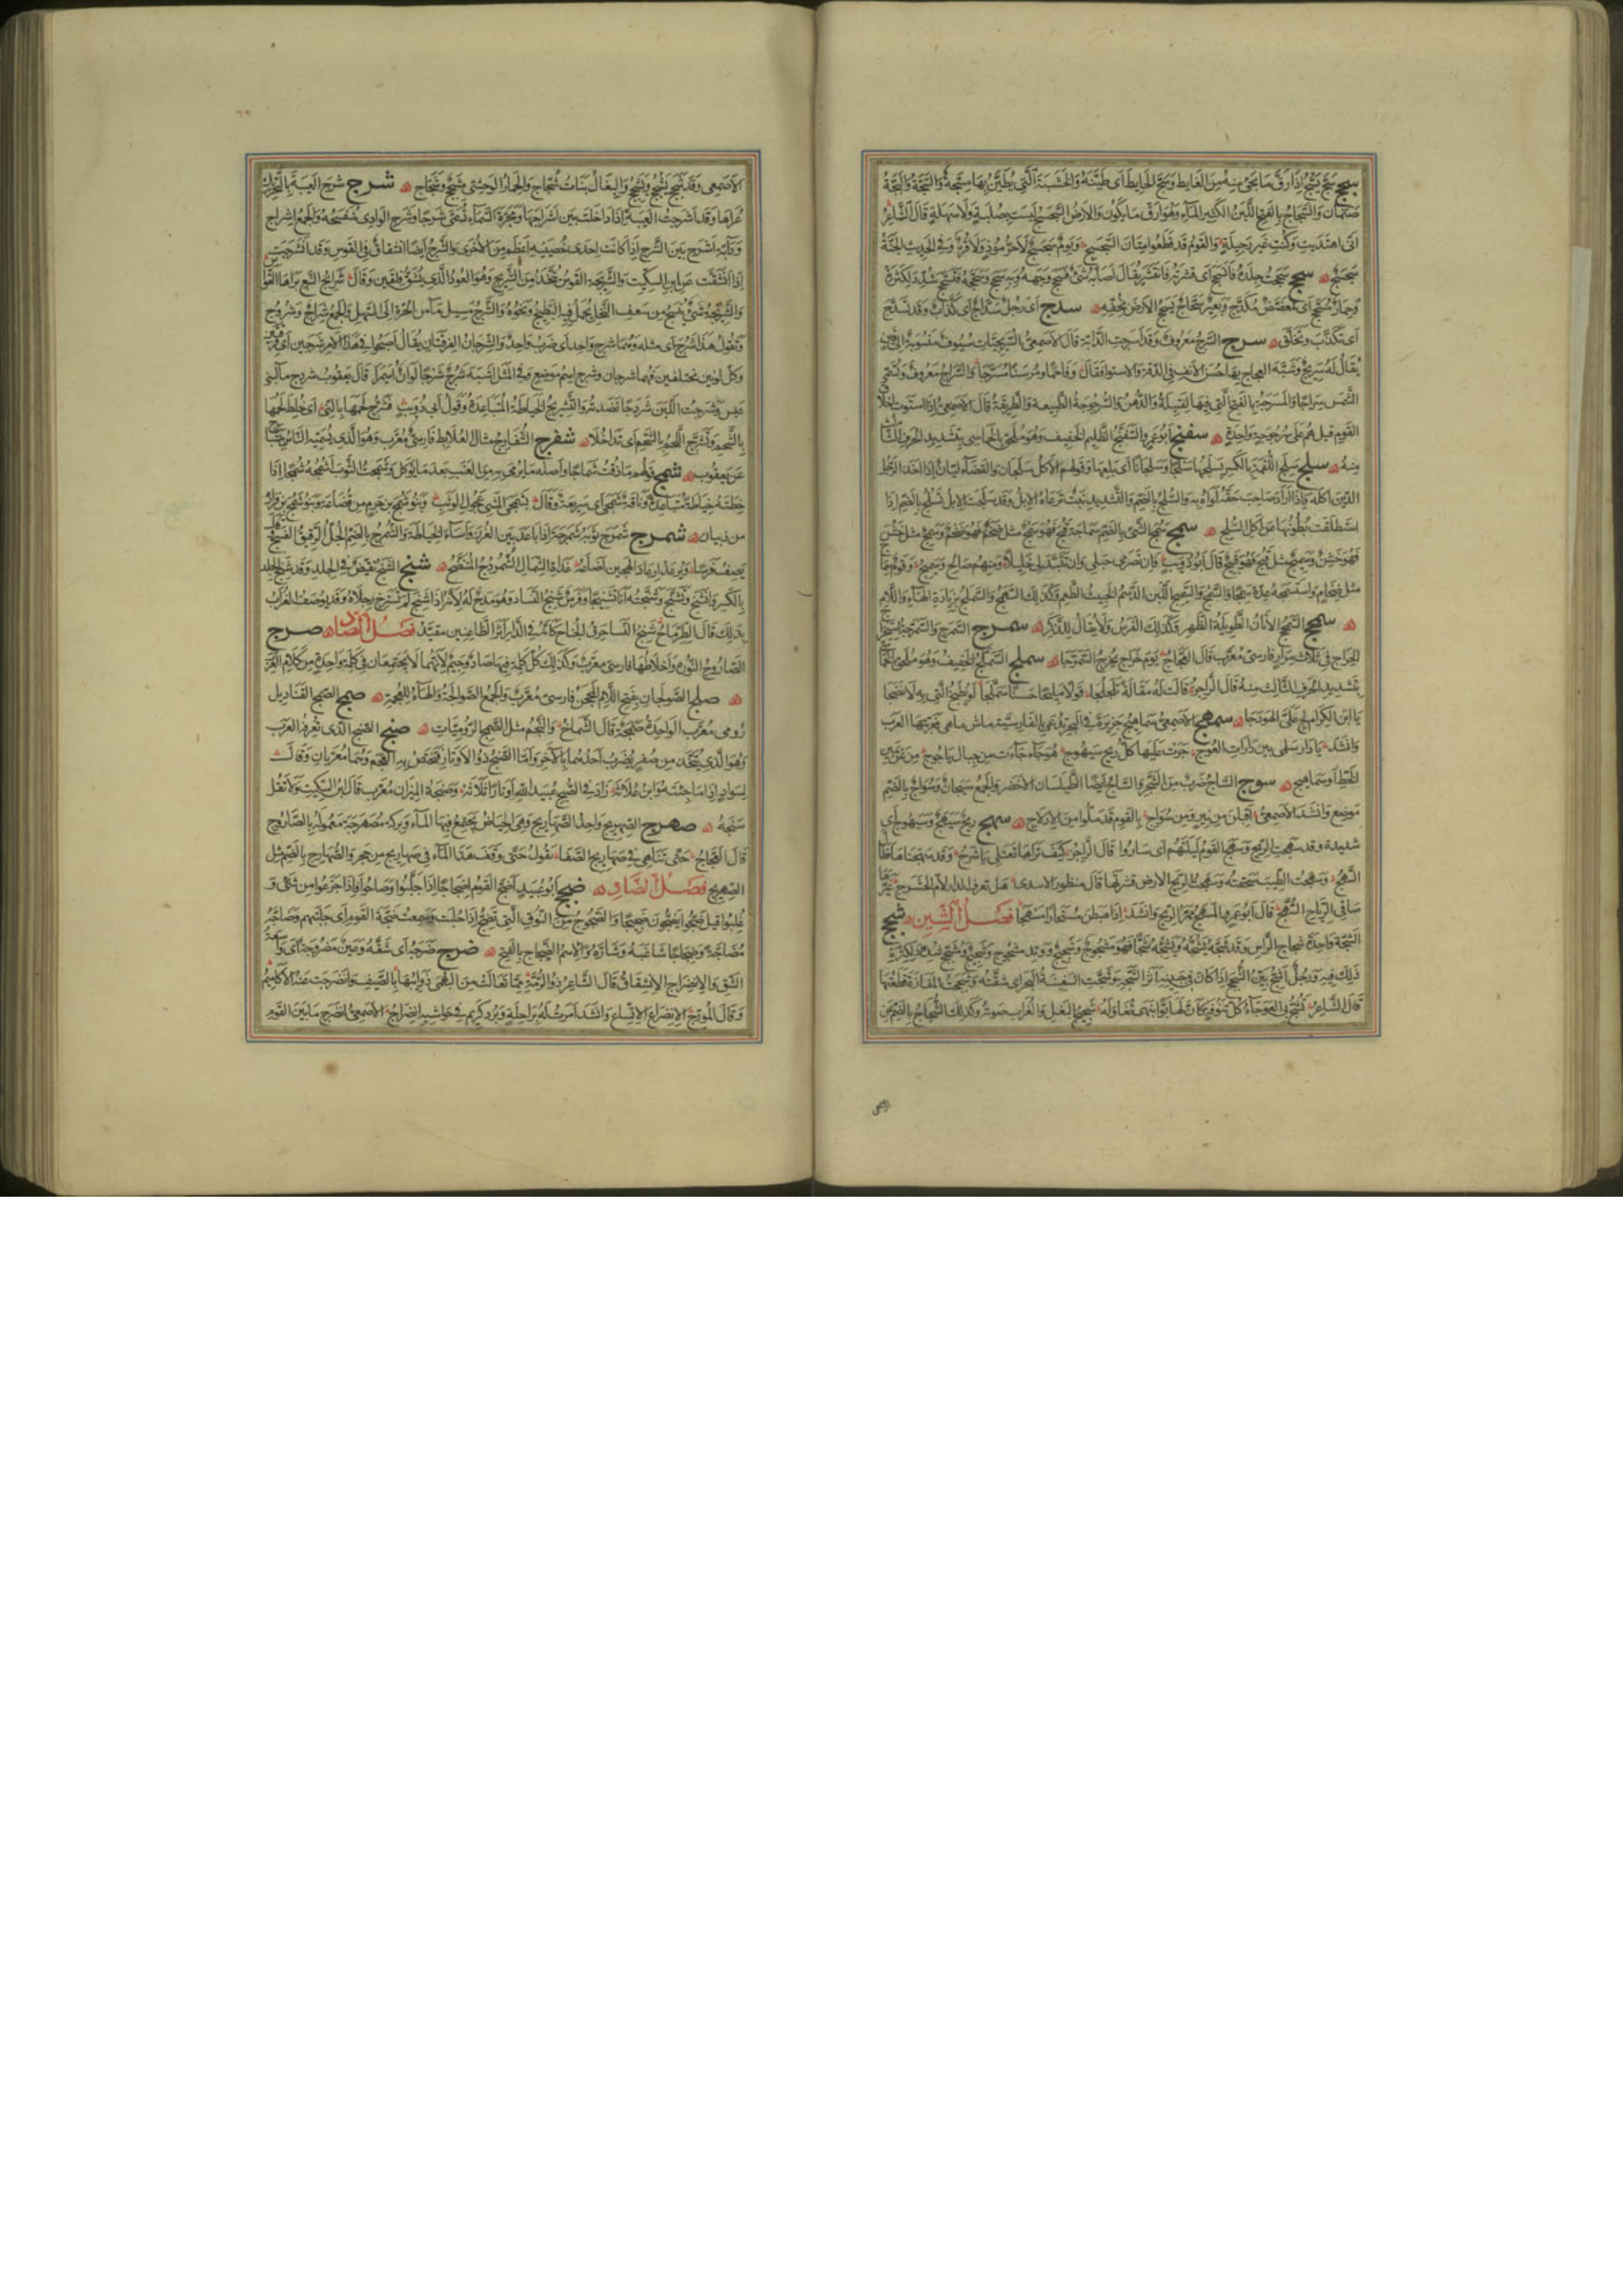 سجج سَجَّ يَسُجُّ اذَا رَقَّ مَا يَجِئُ مِنهُ مِنَ الغَايط وَسَجَّ الحَايطَ اى طيَّنَهُ وَالخَشَبَة الَّتى يُطيَّن بهَا مِسَجَّة وَالسَّجَّة وَالبَجَّة
صَنَمَان وَالسَّجَاجُ بالفَتح اللَّبَنُ الكَثِير المَآء وَهُوَ ارَقُّ مَا يَكُون وَالارضُ السَّجسَجُ لَيسَت بصُلبَةٍ وَلَا سَهلَةٍ قَالَ الشَّاعِر
انّى اهتَدَيت وَكُنتِ غَير رَجيلَةٍ وَالقَومُ قد قَطَعُوا مِتَان السَّجسَج وَيَومٌ سَجسَجٌ لَا حَرٌّ مُوذٍ وَلَا قُرٌّ وَفى الحَدِيث الجَنَّةُ
سَجسَجٌ سحج سَحَجتُ جِلدَهُ فَانسَحَجَ اى قشرتُه فَانقَشَر يُقَال اصَابَهُ شَئٌ فَسَحَجَ وَجهَهُ وَبِه سَحجٌ وَسَحَّجَهُ فَتَسَحَّجَ شُدِّدَ لِلكَثرَةِ
وَحِمَارٌ مُسَحَّجٌ اى مُعَضَّضٌ مُكَدَّحٌ وَبَعيرٌ سَحَّاجٌ يَسحَجُ الارضَ بخُفِّهِ سدج اى رَجُلٌ سَدَّاجٌ اى كَذَّابٌ وَقَد تَسَدَّجَ
اى تَكَذَّبَ وَتَخَلَّقَ سرج السَّرجُ مَعرُوفٌ وَقَد اسرَجت الدَّابّة قَالَ الاصمَعِىُّ السُّرَيجيّات سُيُوفٌ مَنسُوبَةٌ الى قَينٍ
يُقَالُ لَهُ سُرَيجٌ وَشَبَّهَ العجاج بهَا حُسنَ الانف فى الدِّقّة وَالاستوا فقَالَ وَفَاحِمًا وَمَرسِنًا مُسَرَّجَا وَالسِّرَاجُ مَعرُوفٌ وَتُسَمّى
الشَّمس سِرَاجًا وَالمَسرَجَة بالفَتح الَّتى فِيهَا الفَتِيلَةُ وَالدُّهن وَالسُّرجُوجَةُ الطَّبيعَة وَالطَّرِيقَة قَالَ الاصمَعِىُّ اذَا استَوَت اخلاق
القَوم قيل هُم على سُرجُوجَةٍ وَاحِدَةٍ سفنج ابُو عَمرو السَّفَنَّجُ الظَّلِيم الخَفِيف وَهُوَ مُلحَقٌ بالخُمَاسِى بتَشديد الحَرف الثَّالث
مِنهُ سلج سَلِجَ اللُّقمَةَ بالكَسرِ يَسلَجُهَا سَلجًا وَسَلَجَانًا اى بلِعَهَا وَقَولهم الاكلُ سَلَجَان وَالقَضَآء لَيَّانٌ اذَا اخَذَ الرَّجُل
الدَّين اكَلَهُ وَاذَا ارَادَ صَاحِبَ حَقّه لَوَاهُ بِه وَالسُّلَّجُ بالضَّم وَالتَّشديد نَبتٌ تَرعَاهُ الابِل وَقد سَلَجَت الابِل تَسلُجُ بالضَّم اذَا
استَطلَقت بُطُونُهَا عَن اكلِ السُّلَّجِ سمج سَمُجَ الشَّىء بالضَّم سَمَاجَة قَبُحَ فَهُوَ سَمجٌ مثل ضَخُمَ فَهُوَ ضَخمٌ وَسَمِجٌ مثل خَشُنَ
فَهُوَ خَشِنٌ وَسَمِيجٌ مثل قَبُحَ فَهُوَ قَبيحٌ قَالَ ابُو ذُوَيبٍ فَان تَصرِمِى حَبلِى وَان تَتَبَدَّلِى خَلِيلًا وَمِنهُم صَالحٌ وَسَمِيجُ وَقَومٌ سِمَاجٌ
مثل ضِخَام وَاستَسمَجَهُ عَدّهُ سَمِجًا وَالسَّمجُ وَالسَّمِيجُ اللَّبن الدَّسِمُ الخَبِيثُ الطَّعم وَكَذَلِك السَّمهَجُ وَالسَّملَجُ بزيَادَةِ الهَآء وَاللَّام
سمحج السَّمحَجُ الاتَانُ الطَّوِيلَةُ الظَّهر وَكَذَلِكَ الفَرَس وَلَا يُقَالُ لِلذَّكَر سمرج السَّمَرَّج وَالسَّمَرَّجَة استِخرَاج
الخَرَاج فى ثَلَاث مِرَارٍ فَارسِىٌّ مُعَرَّبٌ قَالَ العَجَّاجُ يَومَ خَرَاجٍ يُخرِجُ السَّمَرَّجَا سملج السَّمَلَّجُ الخَفِيفُ وَهُوَ مُلحَقٌ بالخُمَاسِى
بتَشدِيد الحَرف الثَّالث مِنهُ قَالَ الرَّاجِزُ قَالَت لَهُ مَقَالَةً تَلَجلَجَا قَولًا مَلِيحًا حَسَنًا سَمَلَّجَا لَو يُطبَخُ النِّىُّ بِهِ لَانضَجَا
يَا ابنَ الكِرَام لِج عَلَىَّ الهَودَجَا سمهج الاصمَعِىُّ سَمَاهِيجُ جَزِيرَةٌ فى البَحرِ تُدعَى بالفَارسيّة ماش مَاهى فَعَرَّبَتهَا العَرَب
وَانشَد يَا دَارَ سَلمَى بين دَارَاتِ العُوج جَرَت عَلَيهَا كُلُّ رِيحٍ سَيهُوج هَوجَآءَ جَآءَت من جِبَال يَاجُوج مِن عَن يَمِين
الخَطِّ او سَمَاهِيج سوج السَّاجُ ضَربٌ مِنَ الشَّجَر وَالسَّاجُ ايضًا الطَّيلَسَان الاخضَر وَالجَمعُ سِيجَانٌ وَسُوَاجٌ بالضَّم
مَوضِع وَانشَدَ الاصمَعِىُّ اقبَلنَ مِن نِيرٍ وَمِن سُوَاجِ بِالقَومِ قَد مَلُّوا مِنَ الادلَاجِ سهج رِيحٌ سَيهَجٌ وَسَيهُوجٌ اى
شديدة وقد سَهَجَت الرِّيح وَسَهَجَ القَومُ لَيلَتَهُم اى سَارُوا قَالَ الرَّاجِز كَيفَ تَرَاهَا تَغتَلى يَا شَرجُ وَقَد سَهَجنَاهَا فَطَالَ
السَّهجُ وَسَهَجتُ الطِّيبَ سَحَقتُه وَسَهَجَت الرِّيح الارضَ قشَرَتهَا قَالَ مَنظور الاسدى هل تعرف الدار لأم الحشرج غيَّرها
سَافى الرِّيَاح السُّهَّج قَالَ ابُو عَمرو المَسهَجُ مَمَرّ الرِّيح وَانشَد اذَا هَبَطنَ مُستَحَارًا مَسهَجَا فَصــلُ الشّين شجج
الشَّجَّة وَاحِدَة شِجَاج الرَّاس وَقَد شَجَّهُ يَشُجُّهُ وَيَشِجُّهُ شَجًّا فَهُوَ مَشجُوجٌ وَشَجِيجٌ وَوَتد مَشجُوج وَشَجِيجٌ وَمُشَجَّج شُدِّدَ لِكَثرَةِ
ذَلِكَ فِيهِ وَرَجُلٌ اشَجُّ بَيِّنُ الشَّجَجِ اذَا كَانَ فى جَبِينِهِ اثَرُ الشَّجَّةِ وَشَجَّت السَّفِينَة البَحرَ اى شَقَّتهُ وَشَجَجتُ المَفَازَةَ قَطَعتُهَا
قَالَ الشَّاعِر تَشُجُّ بى العَوجَآءُ كُلَّ تَنُوفَةٍ كَانَّ لَهَا بَوًّا بِنَهىٍ تُغَاوِلُهُ شَحِيجُ البَغل وَالغُرَاب صَوتُه وَكَذَلِكَ الشُّحَاجُ بالضَّم عن
الاصمعى
الاصمعى وَقَد شَحَجَ يَشحَجُ وَيَشحِجُ وَالبِغَالُ بَنَاتُ شُحَّاجٍ وَالحِمَارُ الوَحشِى مِشحَجٌ وَشَحَّاج شرج شَرَجُ العَيبَة بالتَّحرِيك
عُرَاهَا وَقَد اشرَجتُ العَيبَةَ اذَا دَاخَلتَ بين اشرَاجهَا وَمَجَرَّة السَّمَآء تُسَمَّى شَرَجًا وَشَرَج الوَادى مُنفَسَحُهُ وَالجَمعُ اشرَاج
وَدَآبَّة اشرَج بَيّنَ الشَّرَجِ اذَا كَانَت احدَى خُصيَيهِ اعظَم مِنَ الاُخرَى وَالشَّرَجُ ايضًا انشقَاقٌ فى القَوس وَقد انشَرَجَت
اذَا انشَقَّت عَن ابن السِّكّيت وَالشَّرِيجَة القَوسُ تُتَّخَذُ مِنَ الشَّرِيج وَهُوَ العُودُ الَّذى يُشَقُّ فِلقَين وَقَالَ شَرَائِجُ النَّبع بَرَاهَا القَوَّاس
وَالشَّرِيجَةُ شَىٌ يُنسَجُ مِن سَعَف النَّخل يُحمَلُ فِيهِ البَطِّيخُ وَنَحوُهُ وَالشَّرجُ مَسِيل مَآءٍ من الحَرَّةِ الى السَّهلِ وَالجَمعُ شِرَاجٌ وَشُرُوجٌ
وَتَقُولُ هَذَا شَرجُ هَذَا اى مثلُه وَهُمَا شَرجٌ وَاحِدٌ اى ضَربٌ وَاحِدٌ وَالشَّرجَانُ الفِرقَتَان يُقَالُ اصبَحُوا فى هَذَا الامر شَرجَين اى فِرقَتَين
وَكُل لَونَين مختَلِفَين فَهُمَا شرجان وَشَرج اسم مَوضِع وَفى المَثَل اشبَهَ شَرجٌ شَرجًا لَو انَّ اُسَيمرًا قَالَ يَعقُوبُ شَرج مَآء لبنى
عَبس وَشَرَجتُ اللَّبِنَ شَرجًا نَضَدتُهُ وَالتَّشرِيجُ الخِيَاطَةُ المُتَبَاعِدَةُ وَقَولُ ابى ذُوَيبٍ فَشُرِّجَ لَحمُهَا بِالنَّىِّ اى خُلِطَ لَحمُهَا
بِالشَّحم وَتَشَرَّجَ اللَّحمُ بِالشَّحمِ اى تَدَاخَلَا شفرج الشُّفَارِجُ مثال العُلَابِط فَارسِىٌّ مُعَرَّب وَهُوَ الَّذى تُسَمِّيهِ النَّاس
عَن يَعقُوب شمج قَولُهم مَا ذُقتُ شَمَاجًا وَاصلُه مَا يُرمَى بِه مِنَ العِنَب بَعدَ مَا يُوكَل وَشَمَجتُ الثَّوبَ اشمُجُهُ شَمجًا اذَا
خِطتَه خِيَاطَةً مُتَبَاعِدَةً وَنَاقَةٌ شَمَجَى اى سَرِيعَةٌ وَقَالَ بِشَمَجَى المَشىِ عَجُولِ الوَثبِ وَبَنُو شَمَجى بن جَرم مِن قُضَاعَةَ وَبَنُو شَمخ بن فَزَارَة
مِن ذُبيَان شمرج شَمرَجَ ثَوبَهُ شَمرَجَةً اذَا بَاعَدَ بَين الغُرَز وَاسَآءَ الخِيَاطَة وَالشُّمرُج بالضَّمّ الجُلّ الرَّقِيقُ النَّسج
يَصِفُ فَرَسًا وَيُرعَدُ ارعَادَ الهَجِين اضَاعَهُ غَدَاةَ الشَّمَالِ الشُّمرُجُ المُتَنَصَّحُ شنج الشَّنَجُ تَقَبُّضٌ فى الجِلدِ وَقَد شَنِجَ الجِلد
بِالكَسرِ وَانشَنَجَ وَتَشَنَّجَ وَشَنَّجتُهُ انَا تَشنِيجًا وَفَرَسٌ شَنِجُ النَّسَا وَهُوَ مَدحٌ لَهُ لانَّهُ اذَا شَنِجَ لَم تَستَرخِ رِجلَاهُ وَقَد يُوصَفُ الغُرَابُ
بِذَلكَ قَالَ الطِّرِمَّاحُ شَنِجُ النَّسَا حَرِقُ الجَنَاحِ كَانَّهُ فِى الدَّارِ اثرَ الظَّاعِنِينَ مُقَيَّدُ فَصــلُ الصَّاد صرج
الصَّارُوجُ النُّورَةُ وَاخلَاطُهَا فَارسى مُعَرَّبٌ وَكَذَلِكَ كُلّ كَلِمَة فِيهَا صَادٌ وَجِيمٌ لانَّهُمَا لَا يَجتَمِعَان فى كَلِمَةٍ وَاحِدَةٍ مِن كَلَامِ العَرَب
صلج الصَّولَجَان بِفَتح اللَّام المِحجَن فَارسىٌّ مُعَرَّبٌ وَالجَمعُ الصَّوَالِجَةُ وَالهَآءُ لِلعُجمَةِ صمج الصَّمَجُ القَنَادِيل
رُومِى مُعَرَّب الوَاحِدَةُ صَمَجَةٌ قَالَ الشَّمَّاخُ وَالنَّجمُ مثلُ الصَّمَجِ الرُّومِيَّاتِ صنج الصَّنج الَّذى تَعرِفُه العَرَب
وَهُوَ الَّذى يُتَّخَذ مِن صُفرٍ يُضرَب احَدُهُمَا بِالآخَرِ وَامَّا الصَّنجُ ذُو الاوتَارِ فَتَختَصّ بِه العَجَمُ وَهُمَا مُعَرَّبَانِ وَقَالَت
وَصَنجَةُ المِيزَان مُعَرَّب قَالَ ابنُ السِّكّيت وَلَا تَقُل
سَنجَة صهرج الصِّهرِيج وَاحِدُ الصَّهَارِيج وَهىَ كَالحِيَاض يَجتَمِعُ فِيهَا المَآء وَبِركَة مُصَهرَجَة مَعمُولَة بِالصَّارُوج
قَالَ العَجَّاجُ حَتَّى تَنَاهَى فى صَهَارِيجِ الصَّفَا يَقُولُ حَتَّى وَقَفَ هَذَا المَآء فى صَهَارِيج مِن حَجَر وَالصُّهَارِج بِالضَّم مثل
الصِّهرِيج فَصــلُ الضَّاد ضجج ابُو عُبَيد اضَجَّ القَومُ اضجَاجًا اذَا جَلَّبُوا وَصَاحُوا وَاذَا جَزِعُوا من شَىْء وَ
غُلِبُوا قيل ضَجُّوا يَضِجُّونَ ضَجِيجًا وَالضَّجُوجُ مِنَ النُّوق الَّتى تَضِجُّ اذَا حُلِبَت وَسَمِعتُ ضَجَّةَ القَومِ اى جَلَبَتَهُم وَضَاجَّهُ
مُضَاجَّةً وَضِجَاجًا شَاغَبَهُ وَشَارَّهُ وَالاسمُ الضَّجَاج بِالفَتح ضرج ضَرَجَهُ اى شَقَّهُ وَعَينٌ مَضرُوجَةٌ اى وَاسِعَةُ
الشَّقّ وَالانضِرَاج الانشِقَاقُ قَالَ الشَّاعِرُ ذُو الرُّمَّة مِمَّا تَعَالَت مِنَ البُهمَى ذَوَائِبُهَا بِالصَّيفِ وَانضَرَجَت عَنهُ الاكَامِيمُ
وَقَالَ المُورِّجُ الانضِرَاجُ الاتِّسَاع وَانشَدَ امَرتُ لَهُ بِرَاحِلَةٍ وَبُردٍ كَرِيم فى حَوَاشِيهِ انضِرَاجُ الاصمَعِىُّ انضَرَجَ مَا بَينَ القَوم